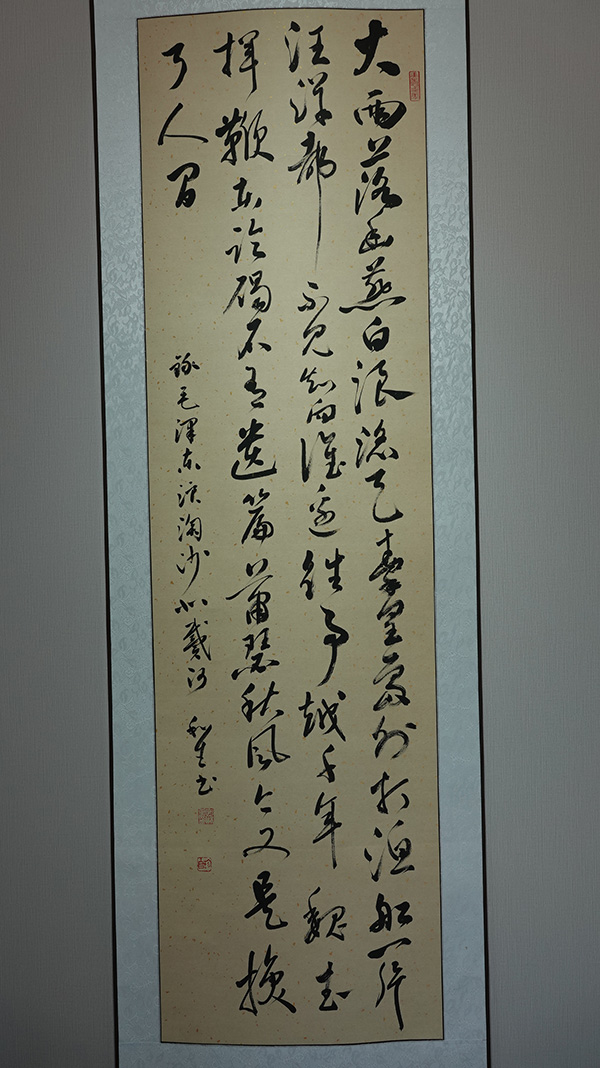 大雨落幽燕白浪滔天秦皇岛外打渔船一片
汪洋都不见知向谁边往事越千年魏武
挥鞭东临碣石有遗篇萧瑟秋风今又是换
了人间
录毛泽东浪淘沙北戴河 和生书